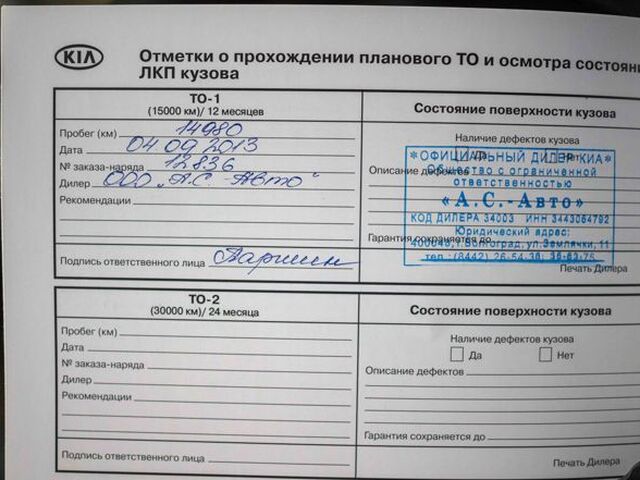 KIA
Отметки о прохождении планового ТО и осмотра состояни
ЛКП кузова
ТО-1
(15000 км)/ 12 месяцев
Состояние поверхности кузова
Пробег (км) 14980
Дата 04 09 2013
№ заказа-наряда 12836
Дилер ООО „А.С.-Авто"
Рекомендации
Подпись ответственного лица Паршин
Наличие дефектов кузова
Да Нет
Описание дефектов
Гарантия сохраняется до
Печать Дилера
*ОФИЦИАЛЬНЫЙ ДИЛЕР КИА*
Общество с ограниченной
ответственностью
«А.С.-Авто»
КОД ДИЛЕРА 34003 ИНН 3443064792
Юридический адрес:
400048, г. Волгоград, ул. Землячки, 11
тел.: (8442) 26-54-
ТО-2
(30000 км)/ 24 месяца
Состояние поверхности кузова
Пробег (км)
Дата
№ заказа-наряда
Дилер
Рекомендации
Подпись ответственного лица
Наличие дефектов кузова
Да Нет
Описание дефектов
Гарантия сохраняется до
Печать Дилера